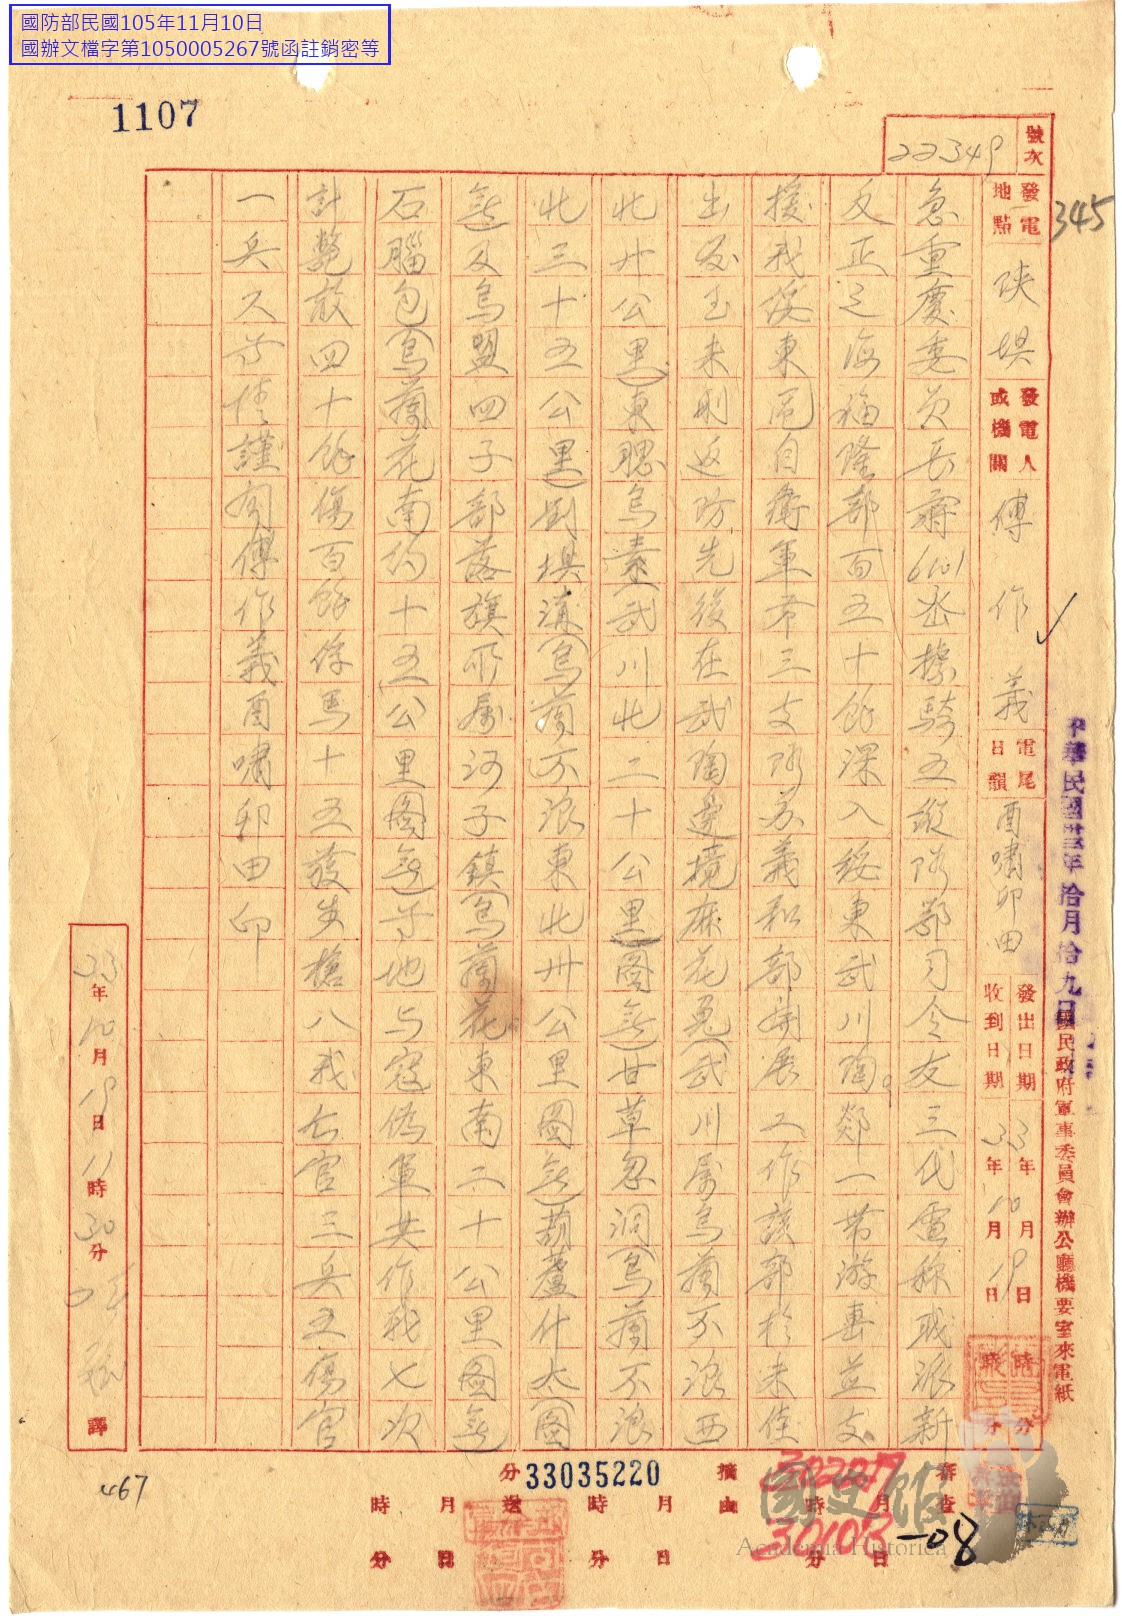 國防部民國105年11月10日
國辦文檔字第1050005267號函註銷密等
1107
345
號次
22349
發電地點
陝垻
發電人或機關
傅作義
電尾日韻
酉嘯卯田
發出日期 33年10月19日 時 分
收到日期 33年10月19日 時 分
國民政府軍事委員會辦公廳機要室來電紙
中華民國卅三年拾月拾九日
急重慶委員長蔣6101密據騎五縱隊鄂司令友三代電稱我派新
反正之海福隆部百五十餘深入綏東武川陶鄰一帶游擊並支
援我綏東蒙自衛軍第三支隊蘇義和部開展工作該部於未佳
出發至未刪返防先後在武陶邊境麻花兔(武川屬烏蘭不浪西
北廿公里)東腮烏素(武川北二十公里圖無)甘草忽洞(烏蘭不浪
北三十五公里)劉垻溝(烏蘭不浪東北卅公里圖無)葫蘆什太(圖
無)及烏盟四子部落旗所屬河子鎮(烏蘭花東南二十公里圖無)
石腦包(烏蘭花南約十五公里圖無)等地与寇偽軍共作戰七次
計斃敵四十餘傷百餘俘馬十五獲步槍八我亡官三兵五傷官
一兵八等情謹聞傅作義酉嘯卯田印
33年10月19日11時30分
譯
467
33035220
審查 月 日 時 分
摘由 月 日 時 分
分送 月 日 時 分
30207
30103
-08
國史館
Academia Historica